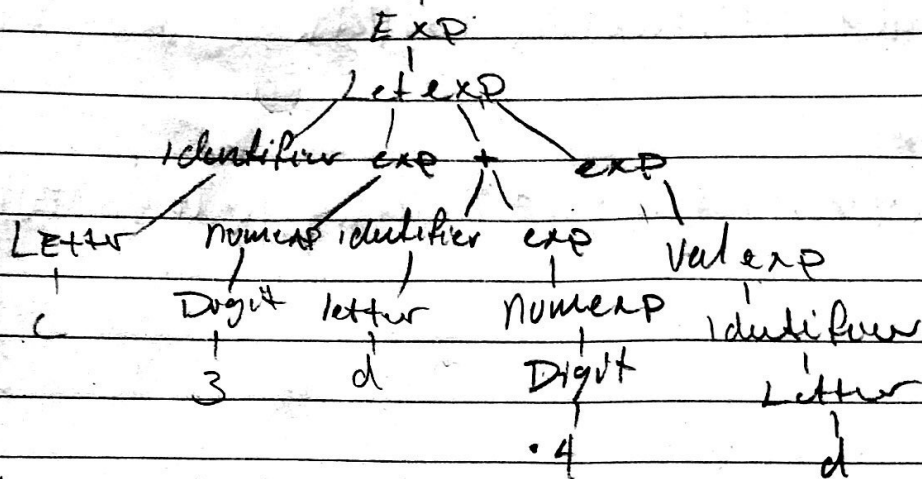 Exp
Letexp
identifier exp + exp
Letter numexp identifier exp
Valexp
Digit letter numexp identifier
c
3 d Digit Letter
.4 d